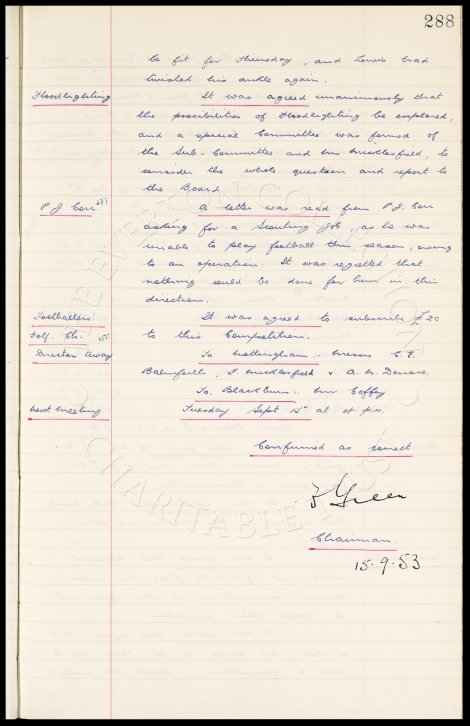 288
be fit for Thursday, and Lewis had
twisted his ankle again.
Floodlighting It was agreed unanimously that
the possibilities of Floodlighting be explored,
and a special Committee was formed of
the Sub-Committee and Mr Micklesfield, to
consider the whole question and report to
the Board
P J Corr A letter was read from P. J. Corr
asking for a Scouting Job, as he was
unable to play football this season, owing
to an operation. It was regretted that
nothing could be done for him in this
direction.
Footballers It was agreed to subscribe £20
Golf. Ch. to this Competition.
Director Away To Nottingham:- Messrs C. E.
Balmforth, F. Micklesfield & A. W. Denaro.
To Blackburn:- Mr Coffey
Next meeting Tuesday Sept 15th at 4 P.M.
Confirmed as correct.
F Green
Chairman.
15.9.53
THE EVERTON COLLECTION
CHARITABLE TRUST